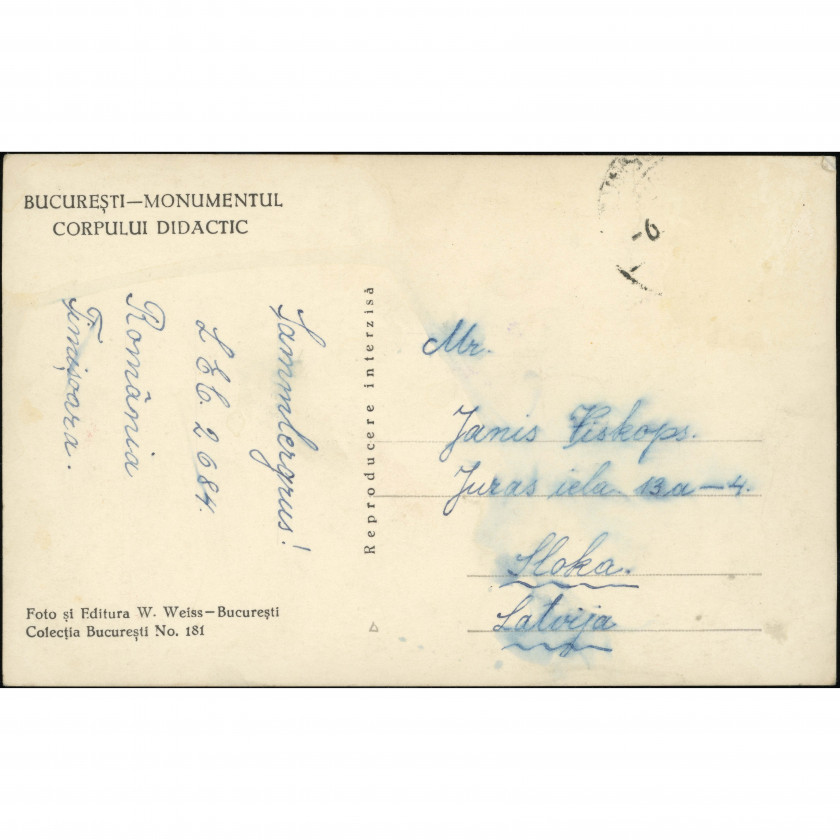 BUCUREȘTI—MONUMENTUL
CORPULUI DIDACTIC
Sammlergrus!
L E C. 2 684.
România
Timișoara.
Foto și Editura W. Weiss—București
Colecția București No. 181
Reproducere interzisă
-6
Mr.
Janis Viskops.
Juras iela 13a—4.
Sloka.
Latvija